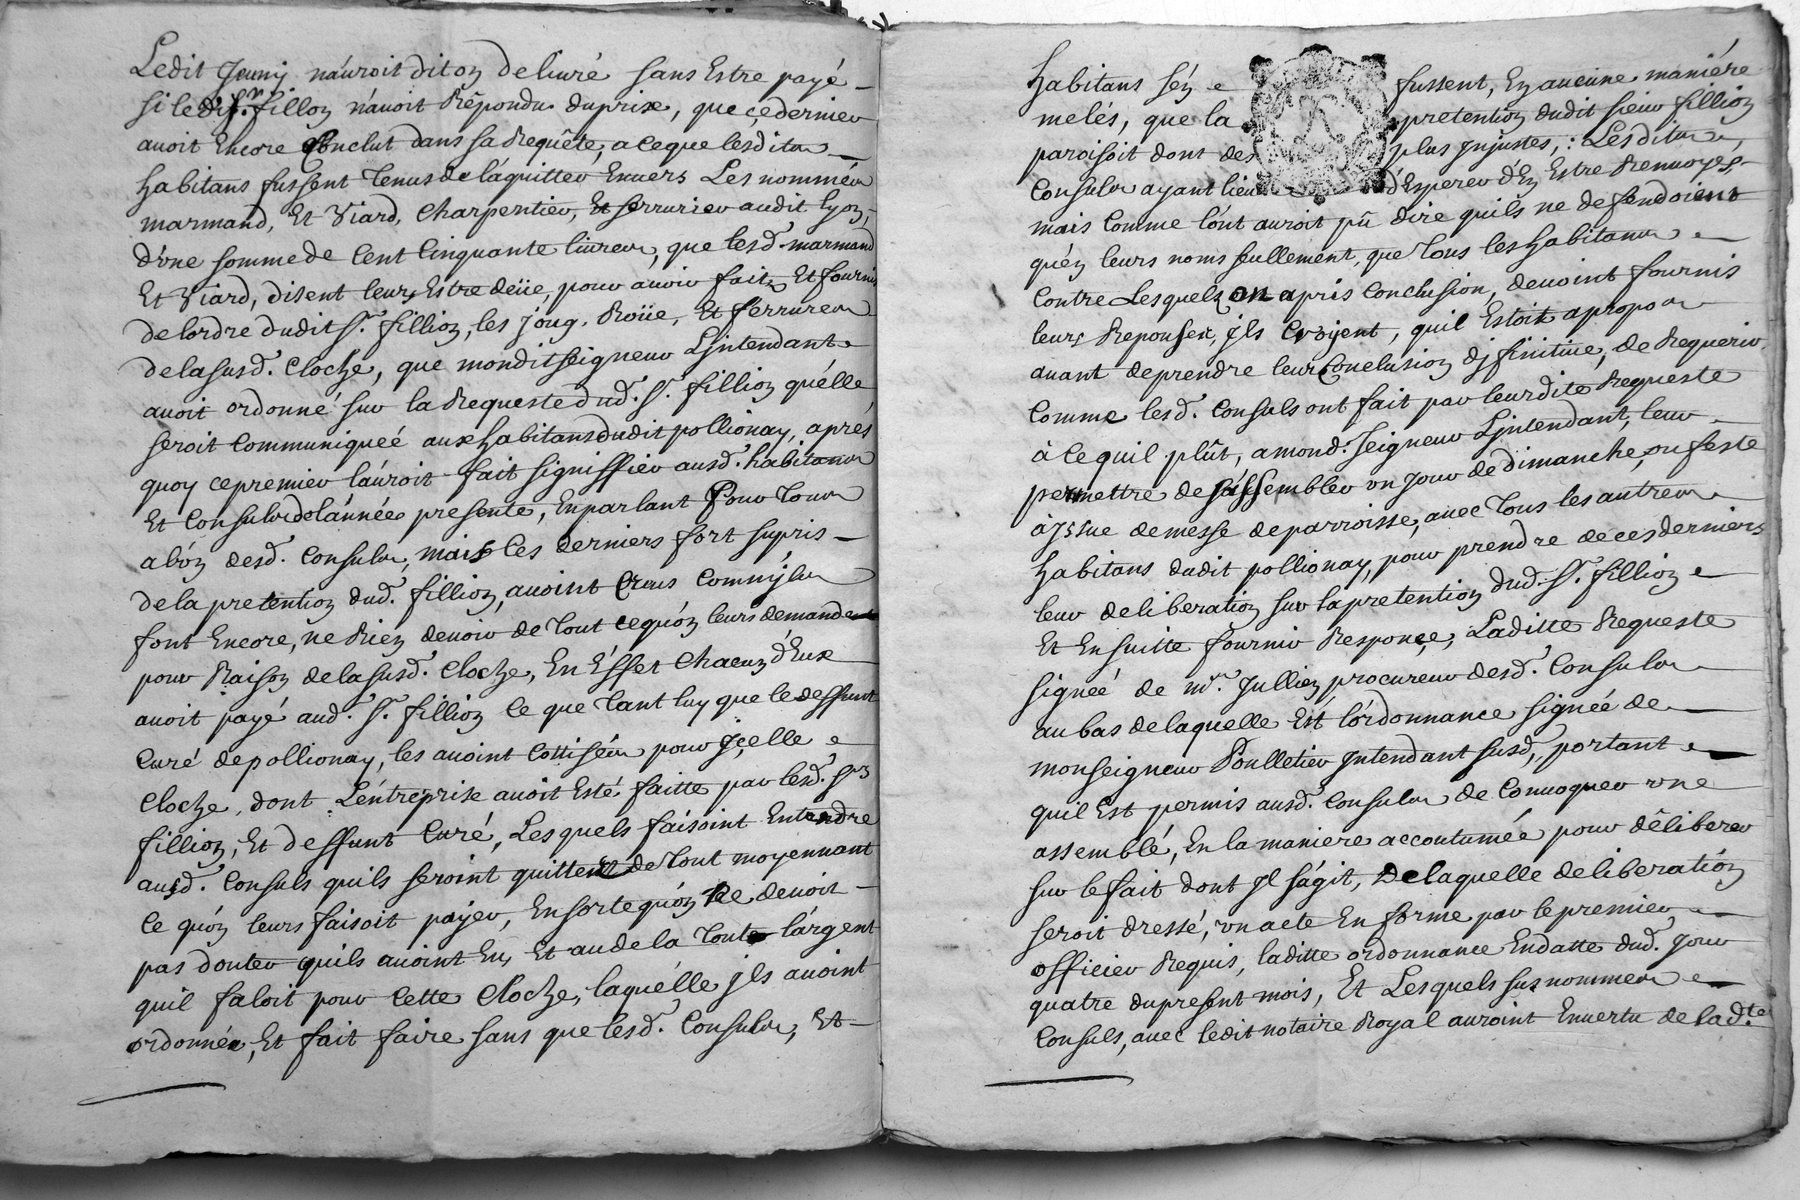 Ledit Jeunij n'auroit dit on delivré sans Estre payé
si ledit Sr. fillon n'avoit Répondu du prix, que ce dernier
avoit Encore Conclut dans sa Requête, a ce que lesdits
habitans fussent tenus de l'aquitter Envers Les nommés
marmand, Et Viard, Charpentier, Et serrurier audit lyon,
d'une somme de Cent Cinquante livres, que lesd. marmand
Et Viard, disent leurs Estre deüe, pour avoir fait, Et fournis
de lordre dudit Sr. fillion, les joug, Roüe, Et ferrures
de la susd. Cloche, que mondit seigneur L'jntendant
avoit ordonné sur la Requeste dud. Sr. fillion qu'elle
seroit Communiqueé aux habitans dudit pollionay, aprés
quoy ce premier l'auroit fait signiffier ausd. habitans
Et Consuls de l'année presente, En parlant Pour tous
a l'ón desd. Consuls, mais Ces derniers fort supris
de la pretention dud. fillion, avoint Crus Comm'jls
font Encore, ne Rien devoir de tout ce qu'ón leurs demande
pour Raison de la susd. Cloche, En Effet Chacun d'Eux
avoit payé aud. Sr. fillion Ce que tant luy que le deffunt
Curé de pollionay, les avoint Cottisés pour jçelle
Cloche, dont L'éntreprise avoit Esté faitte par lesd. Srs
fillion, Et deffunt Curé, Lesquels faisoint Entendre
ausd. Consuls quils seroint quittes de tout moyennant
Ce qu'ón leurs faisoit payer, En sorte qu'ón ne devoit
pas douter quils avoint Eu, Et au dela toute l'árgent
quil faloit pour Cette Cloche, laquélle jls avoint
ordonnée, Et fait faire sans que lesd. Consuls, Et
habitans s'én fussent, En aucune maniére
melés, que la pretention dudit sieur fillion
paroisoit dont des plus jnjustes, : Lesdits
Consuls ayant lieu d'Esperer d'En Estre Renvoyés,
mais Comme l'ónt auroit pû dire quils ne defendoient
qu'én leurs noms seullement, que tous les habitans
Contre Lesquels on a pris Conclusion, devoint fournis
leurs Reponses, jls Croijent, quil Estoit a propos
avant de prendre leur Conclusion djfinitive, de Requerir
Comme lesd. Consuls ont fait par leurdite Requeste
à Ce quil plût, a mond. Seigneur L'jntendant, leur
permettre de s'ássembler un jour de dimanche, ou feste
à jssue de messe de parroisse, avec tous les autres
habitans dudit pollionay, pour prendre de ces derniers
leur deliberation sur la pretention dud. Sr. fillion
Et Ensuitte fournir Responçe, Laditte Requeste
signeé de mr. Jullien procureur desd. Consuls
au bas de laquelle Est l'órdonnance signée de
monseigneur Poulletier jntendant susd, portant
quil Est permis ausd. Consuls de Convoquer une
assemblé, En la maniere accoutumée pour délíberer
sur le fait dont jl s'ágit, De laquelle deliberatión
seroit dressé, un acte En forme par le premier
officier Requis, laditte ordonnance En datte dud. jour
quatre du present mois, Et Lesquels susnommés
Consuls, avec ledit notaire Royal auroint En vertu de lad.te